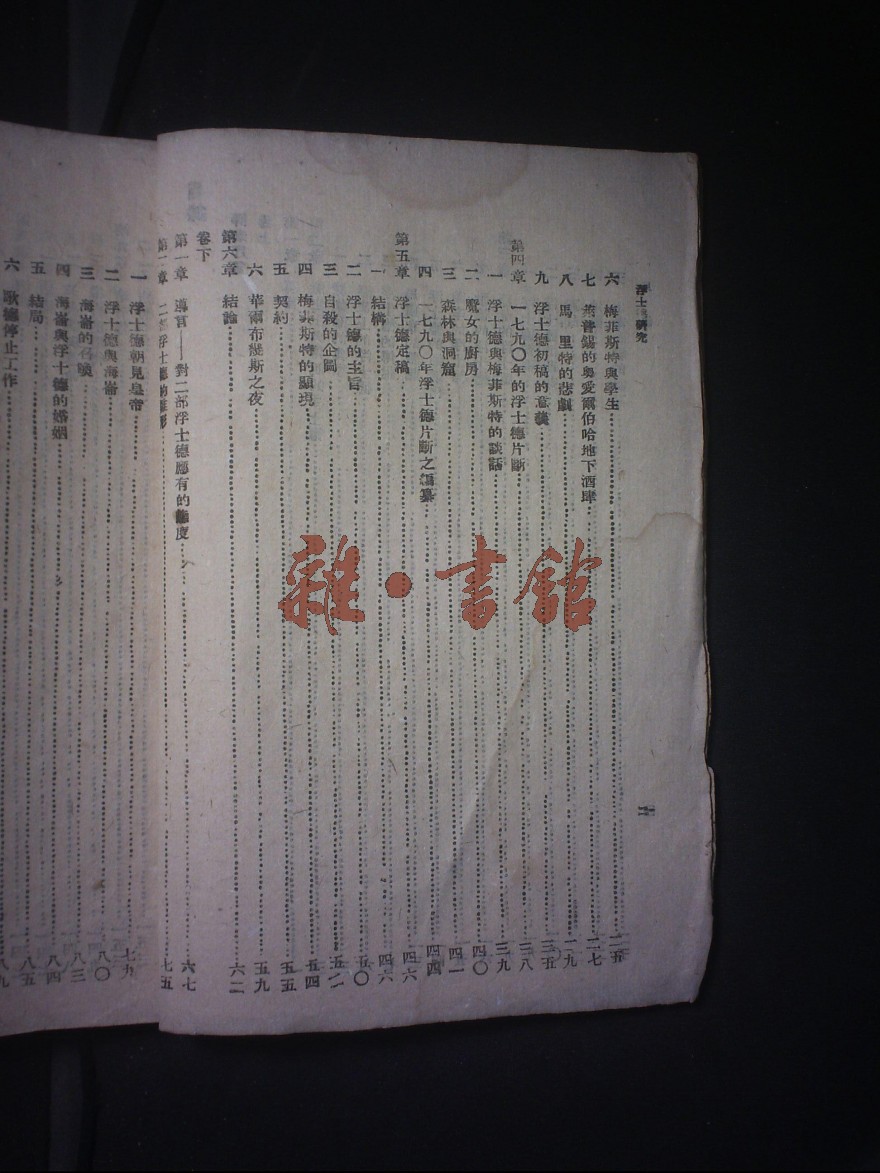 浮士 研究
二
六 梅菲斯特與學生 二五
七 萊普錫的奧愛爾伯哈地下酒肆 二七
八 馬 里特的悲劇 二九
九 浮士德初稿的意義 三五
第四章 一七九〇年的浮士德片斷 三八
一 浮士德與梅菲斯特的談話 三九
二 魔女的廚房 四〇
三 森林與洞窟 四一
四 一七九〇年浮士德片斷之編纂 四四
第五章 浮士德定稿 四六
一 結構 四六
二 浮士德的主旨 五〇
三 自殺的企圖 五二
四 梅菲斯特的顯現 五四
五 契約 五五
六 華爾布幾斯之夜 五九
第六章 結論 六二
卷下
第一章 導言——對二部浮士德應有的態度 六七
第二章 二部浮士德的 七五
一 浮士德朝見皇帝 七九
二 浮士德與海崙 八〇
三 海崙的召喚 八三
四 海崙與浮士德的婚姻 八四
五 結局 八五
六 歌德停止工作 八九
雜·書館